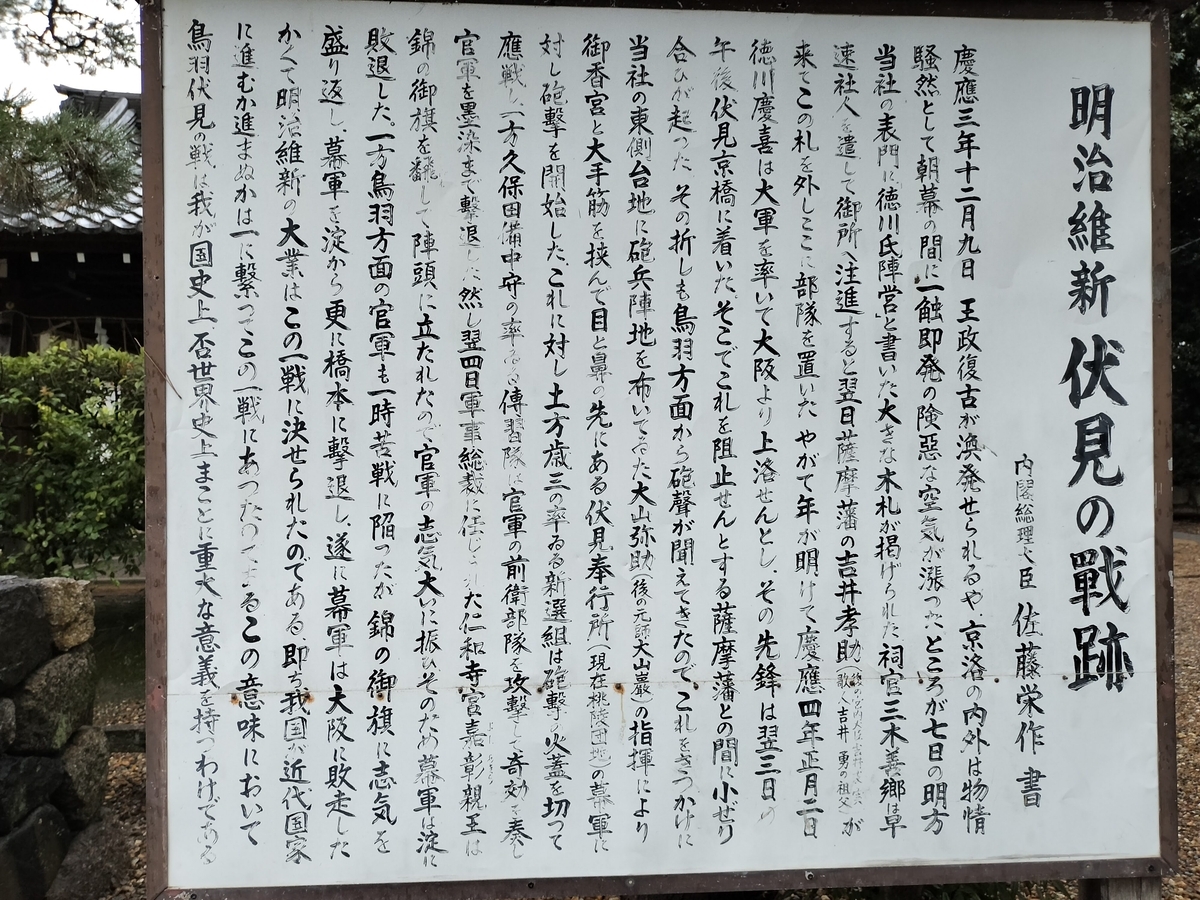 明治維新 伏見の戰跡
内閣総理大臣 佐藤栄作 書
慶應三年十二月九日 王政復古が渙発せられるや 京洛の内外は物情
騒然として朝幕の間に一触即発の険悪な空気が漲つた ところが七日の明方
当社の表門に「徳川氏陣営」と書いた大きな木札が掲げられた 祠官三木善郷は早
速社人を遣して御所へ注進すると翌日薩摩藩の吉井孝助(歌人吉井 勇の祖父)が
来てこの札を外しここに部隊を置いた やがて年が明けて慶應四年正月二日
徳川慶喜は大軍を率いて大阪より上洛せんとし、その先鋒は翌三日の
午後伏見京橋に着いた。そこでこれを阻止せんとする薩摩藩との間に小ぜり
合ひが起つた その折しも鳥羽方面から砲聲が聞えてきたのでこれをきつかけに
当社の東側台地に砲兵陣地を布いてゐた大山弥助(後の元師大山巌)の指揮により
御香宮と大手筋を挟んで目と鼻の先にある伏見奉行所(現在桃陵団地)の幕軍に
対し砲撃を開始した これに対し土方歳三の率ゐる新選組は砲撃の火蓋を切つて
應戦し、一方久保田備中守の率ゐる傳習隊は官軍の前衛部隊を攻撃して奇効を奏し
官軍を墨染まで撃退した 然し翌四日軍事総裁に任じられた仁和寺宮嘉彰親王は
錦の御旗を飜して陣頭に立たれたので官軍の志気大いに振ひそのため幕軍は淀に
敗退した。一方鳥羽方面の官軍も一時苦戦に陥つたが 錦の御旗に志気を
盛り返し、幕軍を淀から更に橋本に撃退し、遂に幕軍は大阪に敗走した
かくて明治維新の大業はこの一戦に決せられたのである、即ち我国が近代国家
に進むか進まぬかは一に繫つてこの一戦にあつたのである この意味において
鳥羽伏見の戦は我が国史上、否世界史上まことに重大な意義を持つわけである